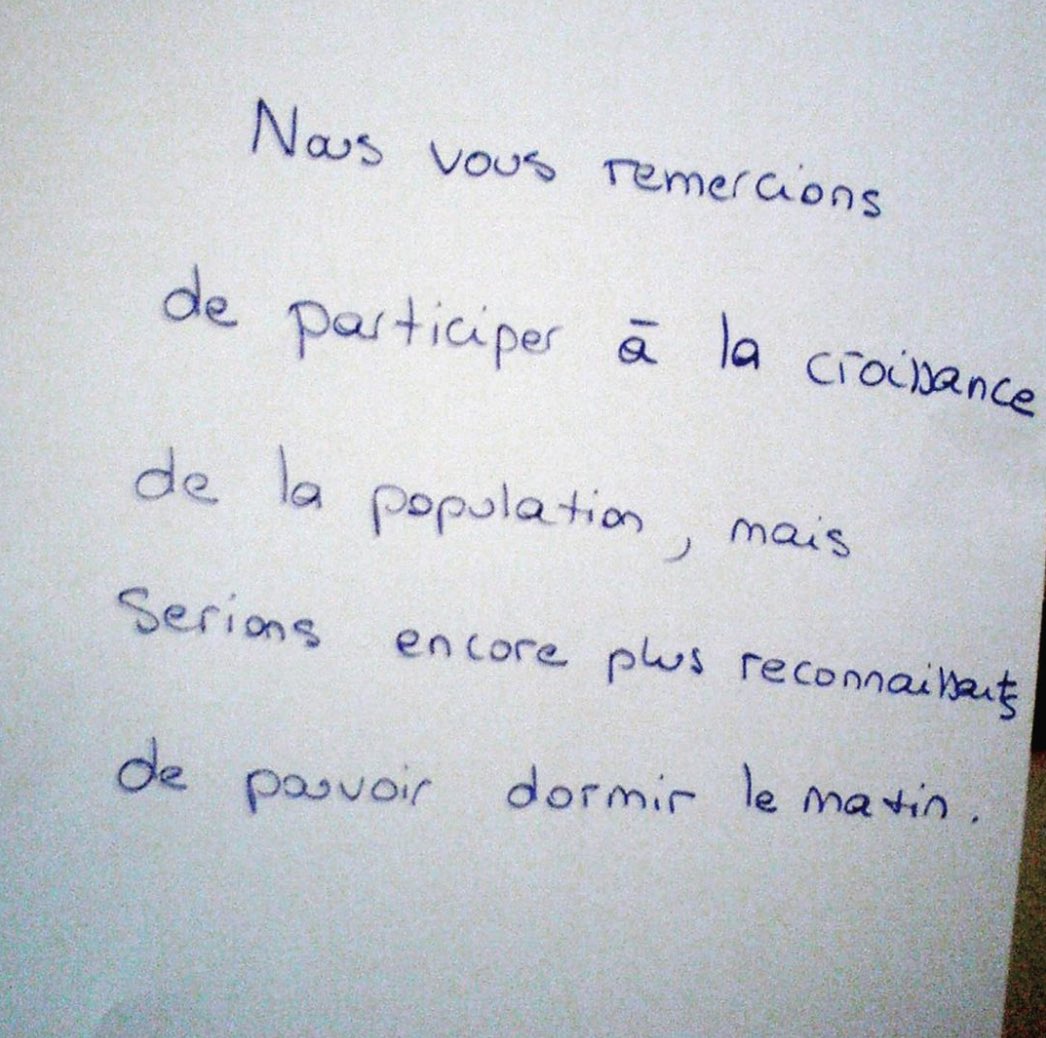 Nous vous remercions
de participer à la croissance
de la population, mais
Serions encore plus reconnaissants
de pouvoir dormir le matin.